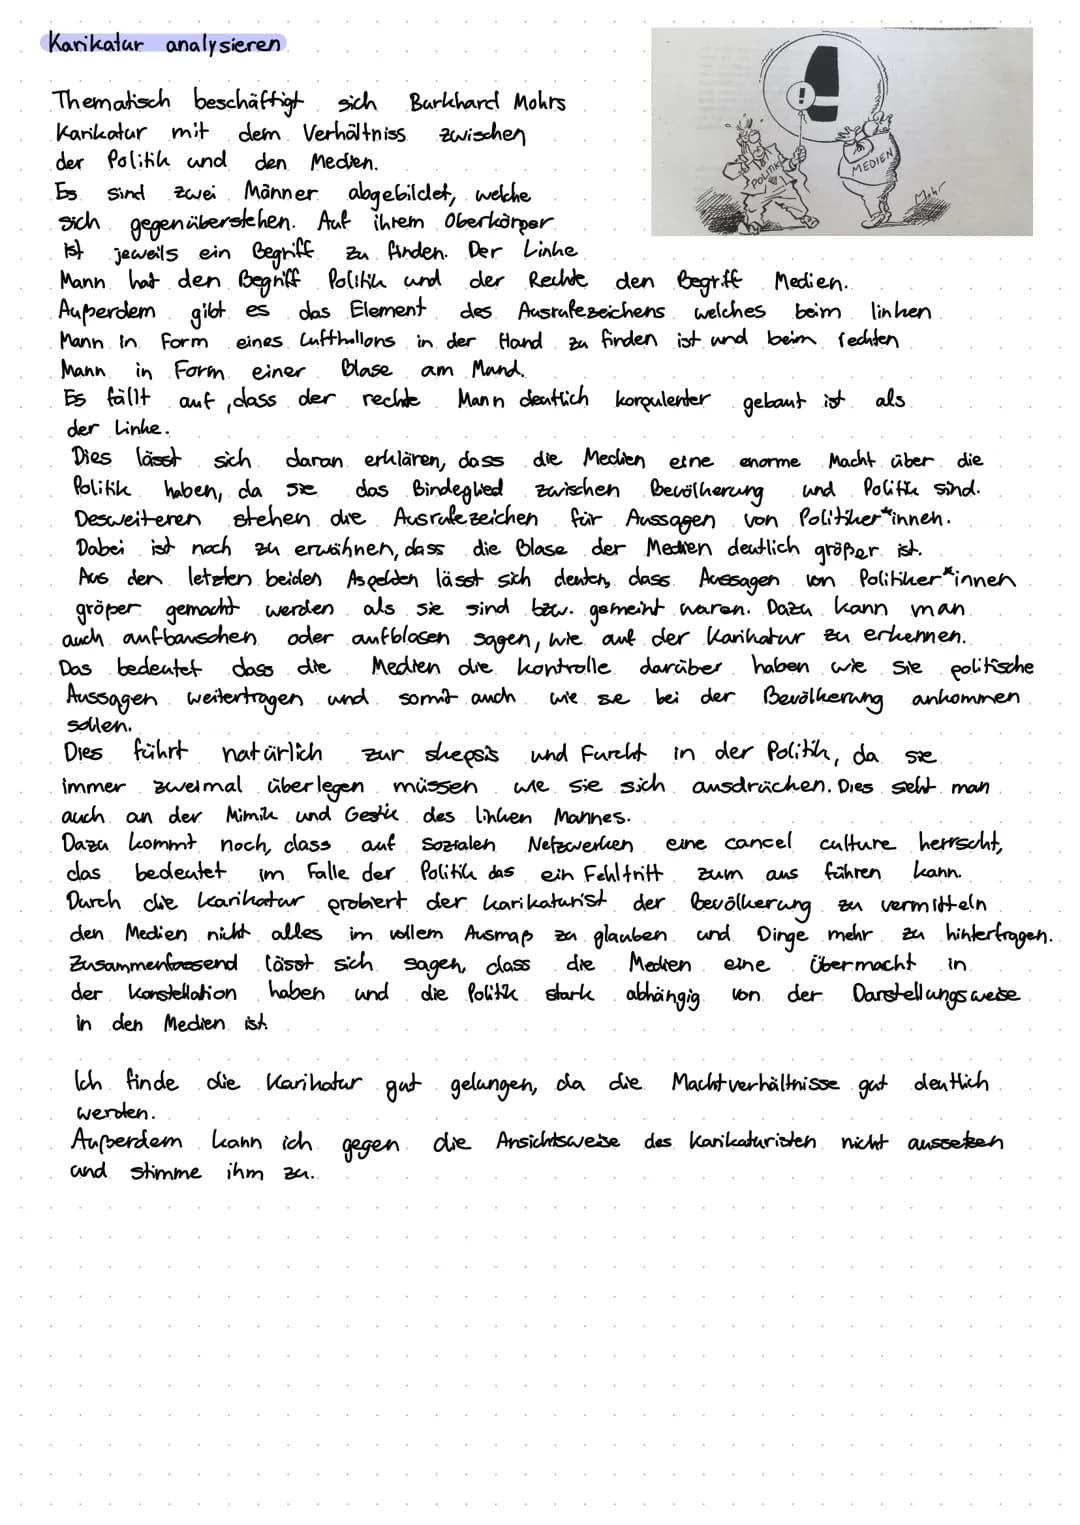 Karikatur analysieren
Thematisch beschäftigt sich Burkhard Mohrs
Karikatur mit dem Verhältniss zwischen
der Politik und den Medien.
Es sind zwei Männer abgebildet, welche
sich gegenüberstehen. Auf ihrem Oberkörper
ist jeweils ein Begriff zu finden. Der Linke
Mann hat den Begriff Politik und der Rechte den Begriff Medien.
Außerdem gibt es das Element des Ausrufezeichens welches beim linken
Mann in Form eines Luftballons in der Hand zu finden ist und beim rechten
Mann in Form einer Blase am Mund.
Es fällt auf, dass der rechte Mann deutlich korpulenter gebaut ist als
der Linke.
Dies lässt sich daran erklären, dass die Medien eine enorme Macht über die
Politik haben, da sie das Bindeglied zwischen Bevölkerung und Politik sind.
Desweiteren stehen die Ausrufezeichen für Aussagen von Politiker*innen.
Dabei ist noch zu erwähnen, dass die Blase der Medien deutlich größer ist.
Aus den letzten beiden Aspekten lässt sich deuten, dass Aussagen von Politiker*innen
größer gemacht werden als sie sind bzw. gemeint waren. Dazu kann man
auch aufbauschen oder aufblasen sagen, wie auf der Karikatur zu erkennen.
Das bedeutet dass die Medien die Kontrolle darüber haben wie sie politische
Aussagen weitertragen und somit auch wie sie bei der Bevölkerung ankommen
sollen.
Dies führt natürlich zur skepsis und Furcht in der Politik, da sie
immer zweimal überlegen müssen wie sie sich ausdrücken. Dies seht man
auch an der Mimik und Gestik des linken Mannes.
Dazu kommt noch, dass auf Sozialen Netzwerken eine cancel culture herrscht,
das bedeutet im Falle der Politik das ein Fehltritt zum aus führen kann.
Durch die Karikatur probiert der Karikaturist der Bevölkerung zu vermitteln
den Medien nicht alles im vollem Ausmaß zu glauben und Dinge mehr zu hinterfragen.
Zusammenfassend lässt sich sagen, dass die Medien eine Übermacht in
der Konstellation haben und die Politik stark abhängig von der Darstellungsweise
in den Medien ist.
Ich finde die Karikatur gut gelungen, da die Machtverhältnisse gut deutlich
werden.
Außerdem kann ich gegen die Ansichtsweise des Karikaturisten nicht aussetzen
und stimme ihm zu.
POLITIK
MEDIEN
Mohr